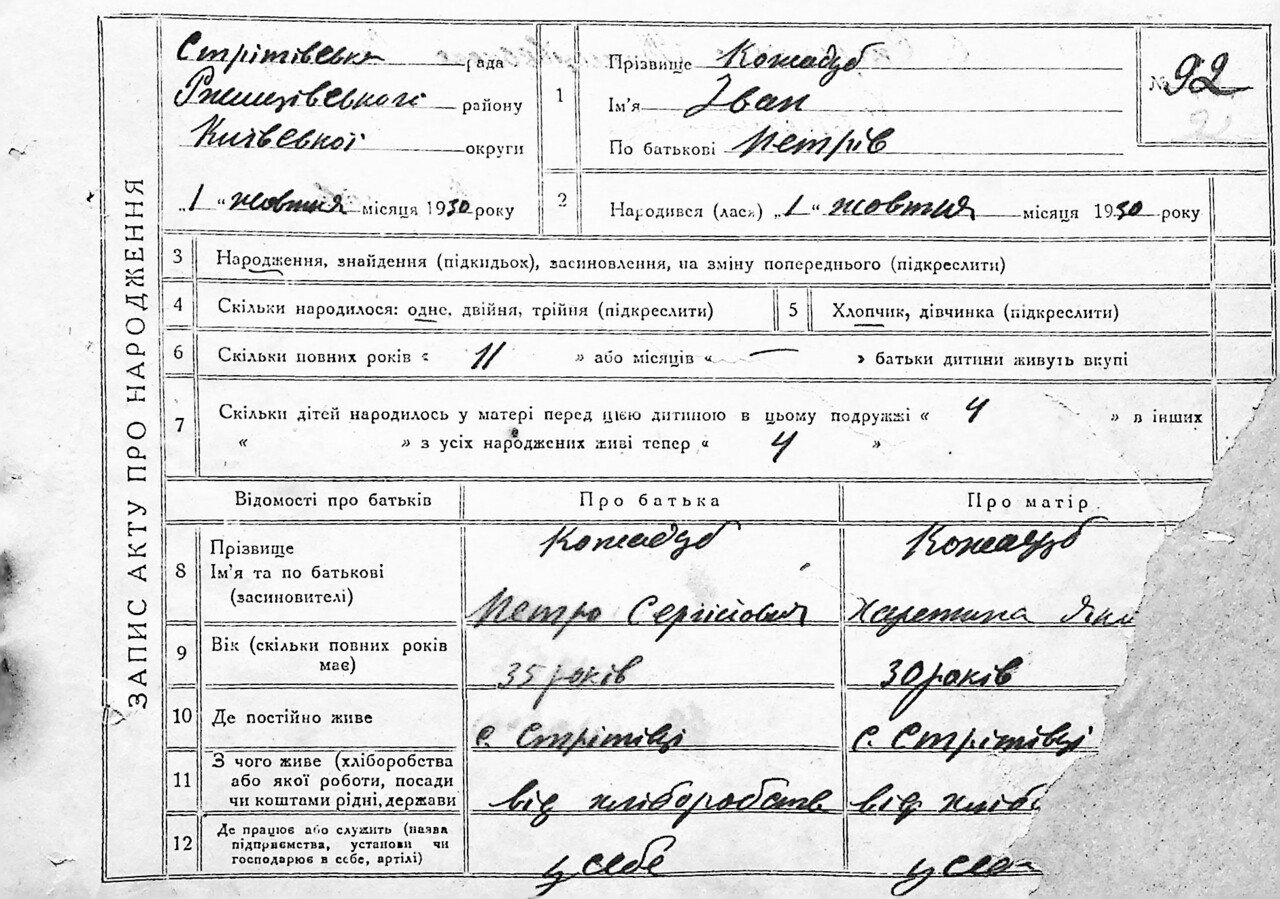 ЗАПИС АКТУ ПРО НАРОДЖЕННЯ
Стрітівська рада
Ржищівського району
Київської округи
„1“ жовтня місяця 1930 року
1 Прізвище Кожадуб
Ім'я Іван
По батькові Петрів
№ 92
2
2 Народився (лася) „1“ жовтня місяця 1930 року
3 Народження, знайдення (підкидьох), засиновлення, на зміну попереднього (підкреслити)
4 Скільки народилося: одне, двійня, трійня (підкреслити)
5 Хлопчик, дівчинка (підкреслити)
6 Скільки повних років « 11 » або місяців « — » батьки дитини живуть вкупі
7 Скільки дітей народилось у матері перед цією дитиною в цьому подружжі « 4 » в інших
« » з усіх народжених живі тепер « 4 »
Відомості про батьків Про батька Про матір
8 Прізвище Кожадуб Кожадуб
Ім'я та по батькові
(засиновителі) Петро Сергійович Харетина Яким
9 Вік (скільки повних років
має) 35 років 30 років
10 Де постійно живе с. Стрітівці с. Стрітівці
11 З чого живе (хліборобства
або якої роботи, посади
чи коштами рідні, держави від хліборобств від хлібо
12 Де працює або служить (назва
підприємства, установи чи
господарює в себе, артілі) у себе у себе